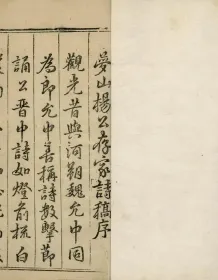 夢山楊公存家詩稿序
觀光昔與河朔魏允中同
為郎允中善稱詩數擊節
誦公晋中詩如燈前梳白